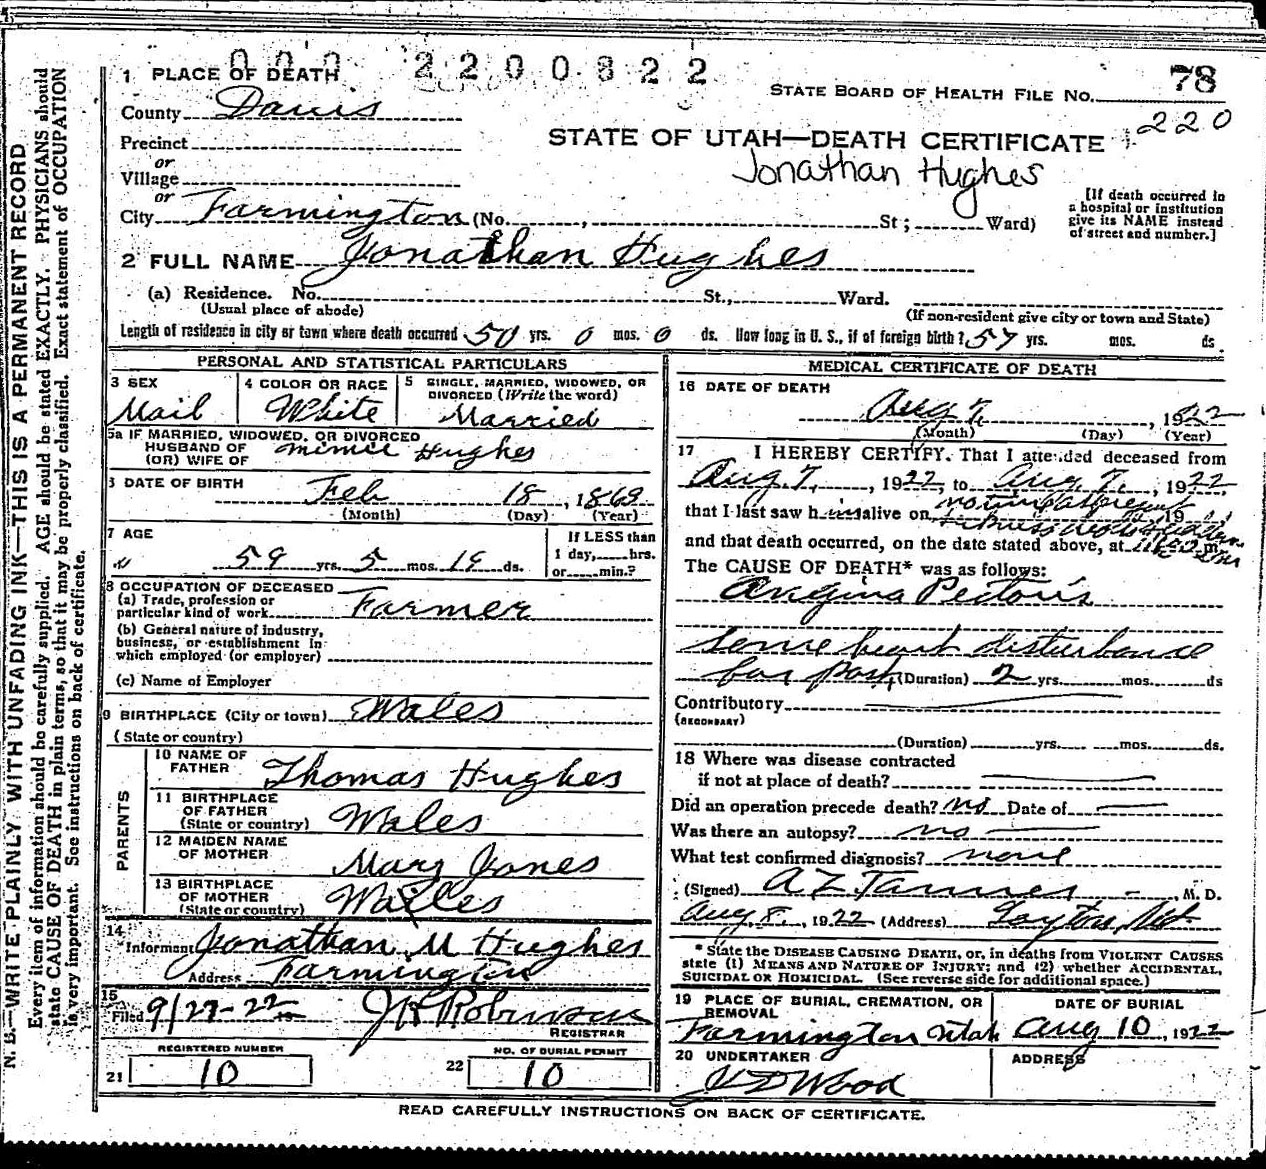 000 2200822
1 PLACE OF DEATH
78
STATE BOARD OF HEALTH FILE No.
County Davis
220
STATE OF UTAH—DEATH CERTIFICATE
Precinct
or
Village
Jonathan Hughes
or
City Farmington (No. , St; Ward)
[If death occurred in
a hospital or institution
give its NAME instead
of street and number.]
2 FULL NAME Jonathan Hughes
(a) Residence. No. St., Ward.
(Usual place of abode)
(If non-resident give city or town and State)
Length of residence in city or town where death occurred 50 yrs. 0 mos. 0 ds. How long in U. S., if of foreign birth? 57 yrs. mos. ds.
PERSONAL AND STATISTICAL PARTICULARS
3 SEX
Mail
4 COLOR OR RACE
White
5 SINGLE, MARRIED, WIDOWED, OR
DIVORCED (Write the word)
Married
5a IF MARRIED, WIDOWED, OR DIVORCED
HUSBAND OF
(OR) WIFE OF
Minnie Hughes
DATE OF BIRTH
Feb 18, 1863
(Month) (Day) (Year)
7 AGE
59 yrs. 5 mos. 19 ds.
If LESS than
1 day, hrs.
or min.?
8 OCCUPATION OF DECEASED
(a) Trade, profession or
particular kind of work Farmer
(b) General nature of industry,
business, or establishment in
which employed (or employer)
(c) Name of Employer
9 BIRTHPLACE (City or town) Wales
(State or country)
PARENTS
10 NAME OF
FATHER Thomas Hughes
11 BIRTHPLACE
OF FATHER
(State or country) Wales
12 MAIDEN NAME
OF MOTHER Mary Jones
13 BIRTHPLACE
OF MOTHER
(State or country) Wales
14
Informant Jonathan M Hughes
Address Farmington
15
Filed 9/27-22 J K Robinson
REGISTRAR
REGISTERED NUMBER
21 10
NO. OF BURIAL PERMIT
22 10
MEDICAL CERTIFICATE OF DEATH
16 DATE OF DEATH
Aug 7, 1922
(Month) (Day) (Year)
17 I HEREBY CERTIFY, That I attended deceased from
Aug. 7, 1922, to Aug. 7, 1922,
that I last saw him alive on 19
and that death occurred, on the date stated above, at m.
The CAUSE OF DEATH* was as follows:
Angina Pectoris
some heart disturbance
for past (Duration) 2 yrs. mos. ds
Contributory
(SECONDARY)
(Duration) yrs. mos. ds.
18 Where was disease contracted
if not at place of death?
Did an operation precede death? no Date of
Was there an autopsy? no
What test confirmed diagnosis? none
(Signed) A Z Tanner M. D.
Aug 8, 1922 (Address) Layton, Ut
* State the DISEASE CAUSING DEATH, or, in deaths from VIOLENT CAUSES
state (1) MEANS AND NATURE OF INJURY; and (2) whether ACCIDENTAL,
SUICIDAL OR HOMICIDAL. (See reverse side for additional space.)
19 PLACE OF BURIAL, CREMATION, OR
REMOVAL
Farmington Utah
DATE OF BURIAL
Aug 10, 1922
20 UNDERTAKER
J D Wood
ADDRESS
READ CAREFULLY INSTRUCTIONS ON BACK OF CERTIFICATE.
N. B.—WRITE PLAINLY WITH UNFADING INK—THIS IS A PERMANENT RECORD
Every item of information should be carefully supplied. AGE should be stated EXACTLY. PHYSICIANS should
state CAUSE OF DEATH in plain terms, so that it may be properly classified. Exact statement of OCCUPATION
is very important. See instructions on back of certificate.